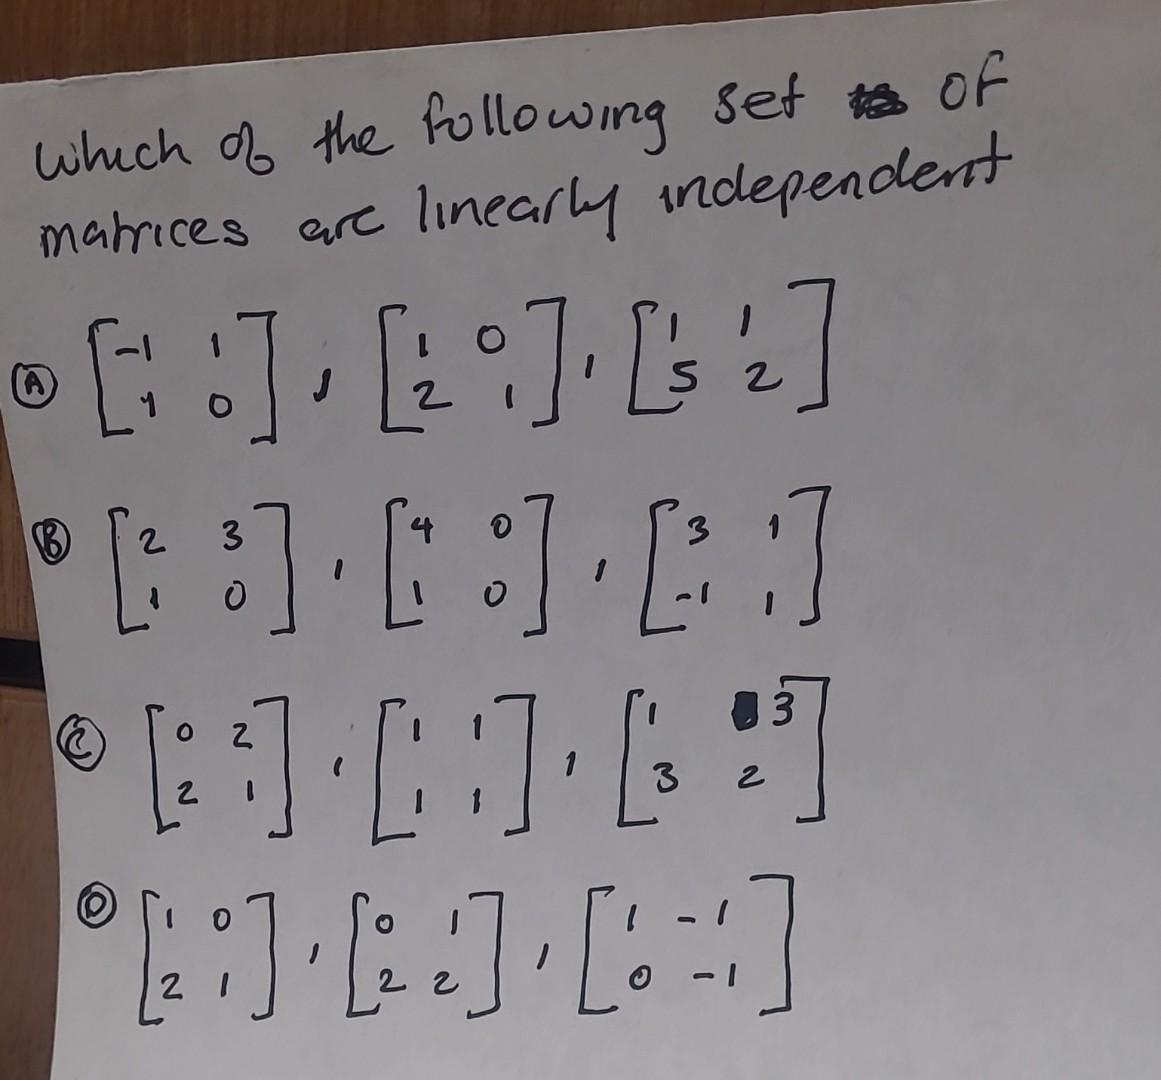 Which of the following set of
matrices are linearly independent
Ⓐ [-1 1], [1 0], [1 1]
[1 0] [2 1] [5 2]
Ⓑ [2 3], [4 0], [3 1]
[1 0] [1 0] [-1 1]
Ⓒ [0 2], [1 1], [1 3]
[2 1] [1 1] [3 2]
Ⓓ [1 0], [0 1], [1 -1]
[2 1] [2 2] [0 -1]